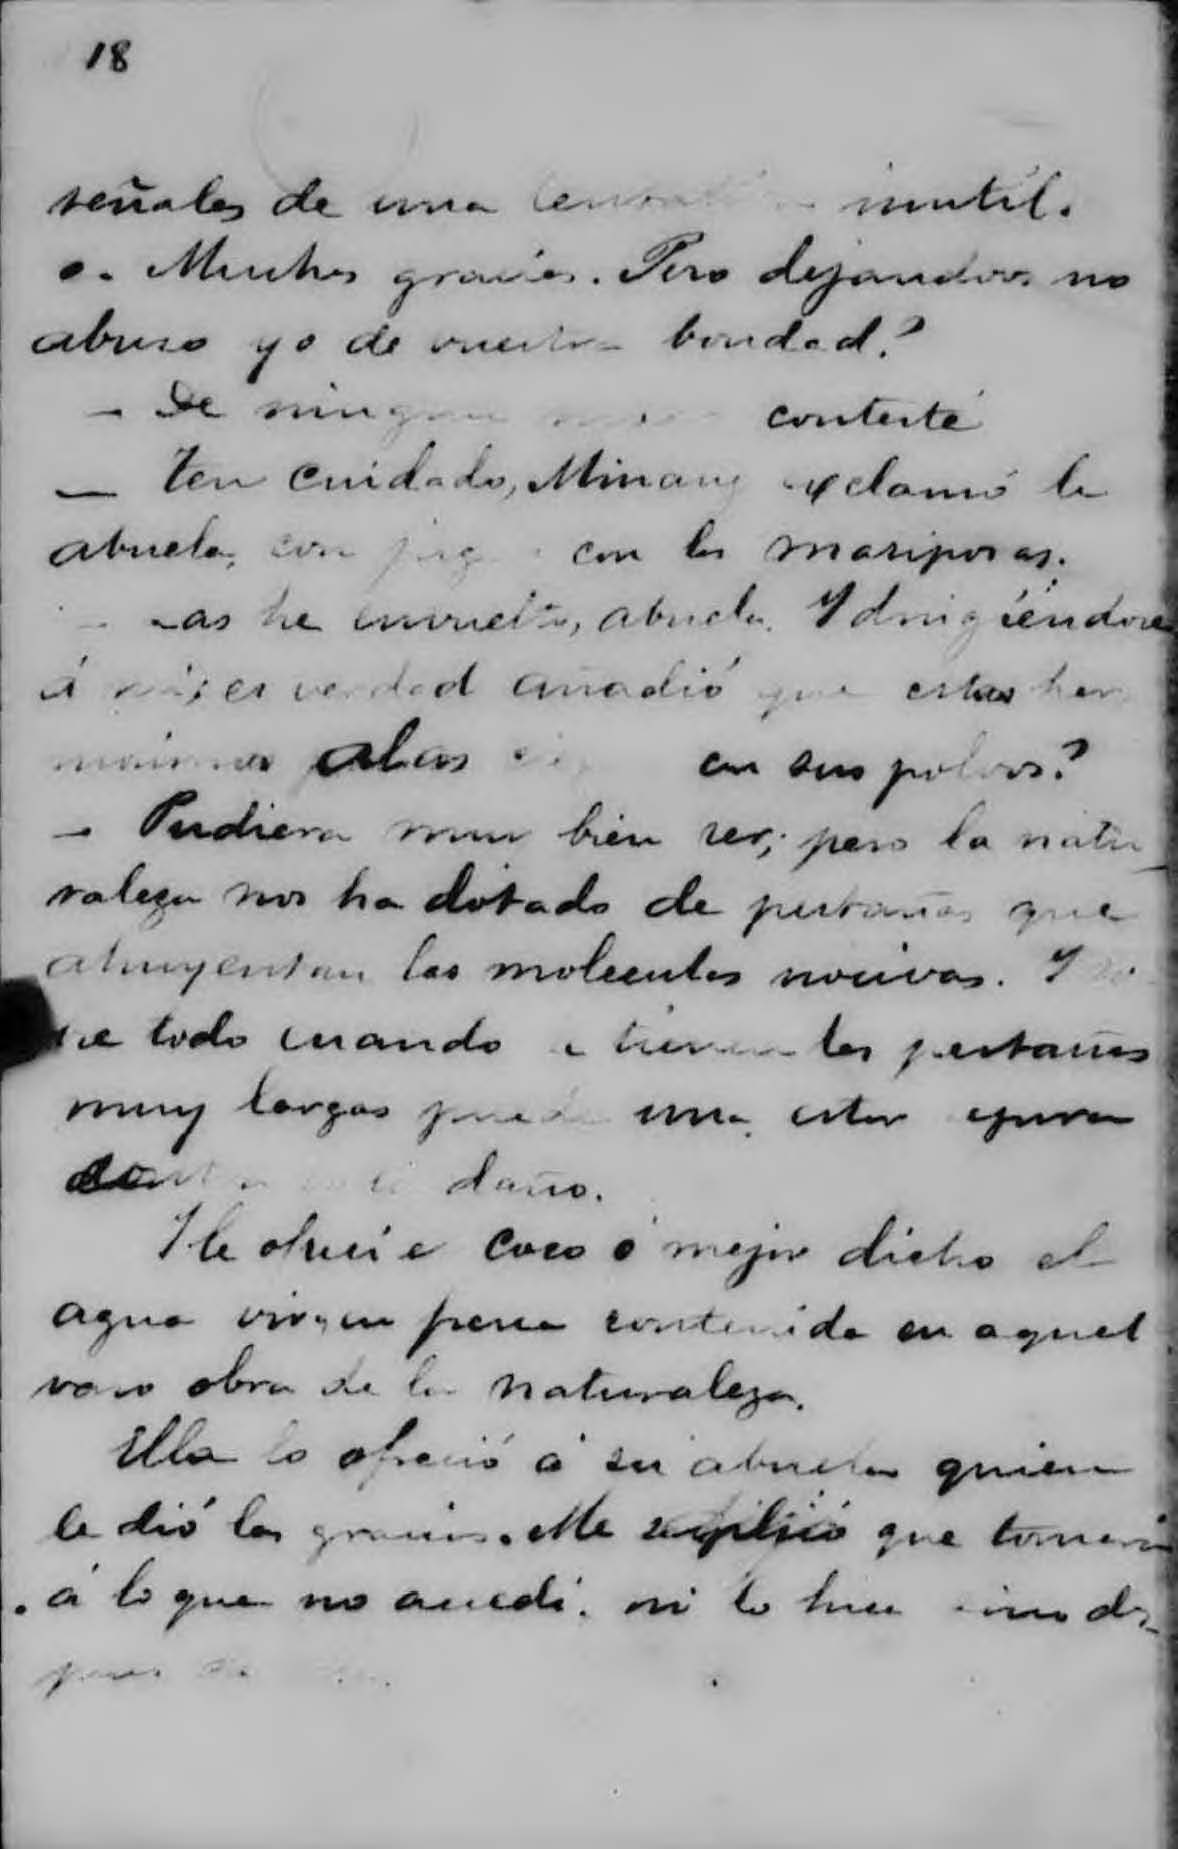 18
señales de una inutil.
o. Muchas gracias. Pero dejandoos no
abuso yo de vuestra bondad?
– De ningun contesté
– Ten cuidado, Minang exclamó la
abuela, con con las mariposas.
as he envuelto, abuela. Y dirigiéndose
á mi; es verdad añadió que estas her
mosisimas alas en sus polvos?
– Pudiera muy bien ser; pero la natu_
raleza nos ha dotado de pestañas que
ahuyentan las moleculas nocivas. Y so
bre todo cuando se tienen las pestañas
muy largas puede una estar segura
daño.
Y le ofreci el coco ó mejor dicho el
agua virgen fresca contenida en aquel
vaso obra de la naturaleza.
Ella lo ofreció á su abuela quien
le dió las gracias. Me suplicó que tomara
á lo que no accedi. ni lo hice sino des_
pues de